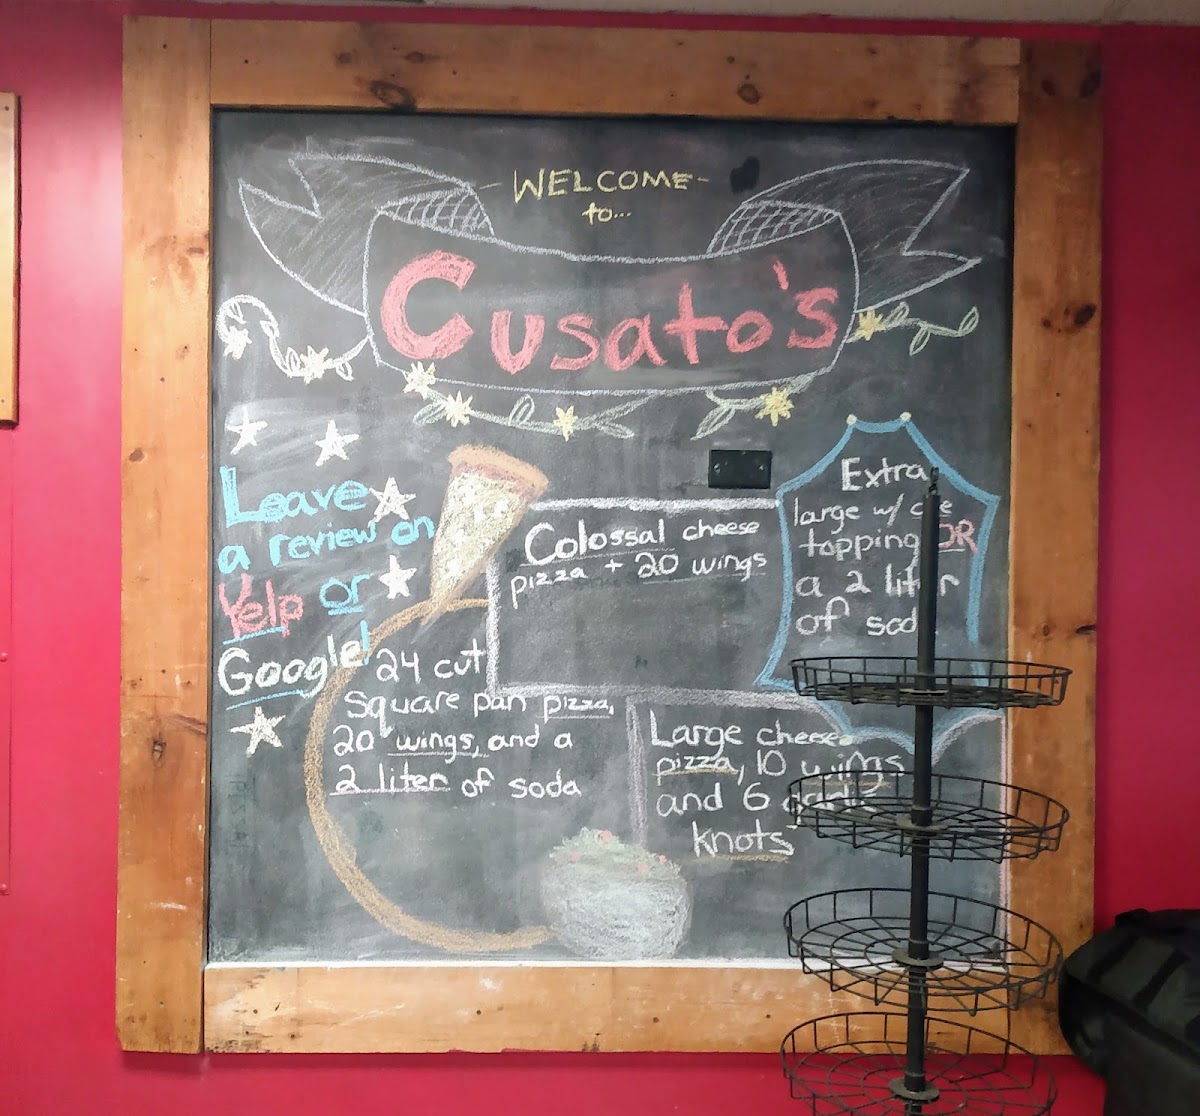 WELCOME
to...
Cusato's
Leave
a review on
Yelp or
Google!
Colossal cheese
pizza + 20 wings
Extra
large w/
topping OR
a 2 liter
of soda
24 cut
square pan pizza,
20 wings, and a
2 liter of soda
Large cheese
pizza, 10 wings
and 6 garlic
knots